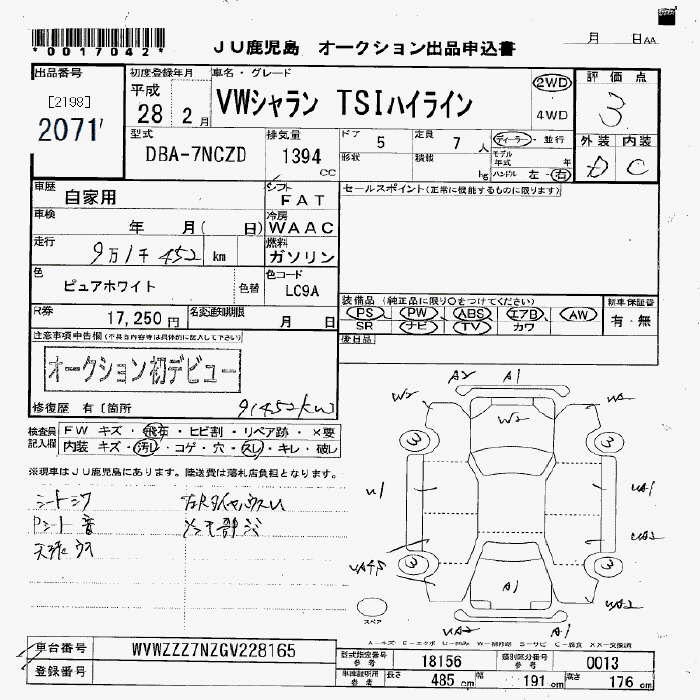 *0017042*
JU鹿児島 オークション出品申込書
月 日AA
出品番号
[2198]
2071
初度登録年月
平成
28 2月
車名・グレード
VWシャラン TSIハイライン
2WD
4WD
評価点
3
外装 内装
D C
型式
DBA-7NCZD
排気量
1394
CC
ドア 5
定員 7 人
形状
積載 kg
ディーラー・並行
モデル年式 年
ハンドル 左・右
車歴
自家用
シフト
FAT
セールスポイント(正常に機能するものに限ります)
車検
年 月( 日)
冷房
WAAC
走行
9万1千452 km
燃料
ガソリン
色
ピュアホワイト
色替
色コード
LC9A
装備品 (純正品に限り○をつけてください)
PS PW ABS エアB AW
SR ナビ TV カワ
新車保証書
有・無
後日品
R券
17,250円
名変通知期限
月 日
注意事項申告欄(不具合内容等は具体的に記入して下さい)
オークション初デビュー
修復歴 有〔箇所
91452km
検査員記入欄
FW キズ・飛石・ヒビ割・リペア跡・×要
内装 キズ・汚レ・コゲ・穴・スレ・キレ・破レ
※現車はJU鹿児島にあります。陸送費は落札店負担となります。
シートシワ
Pシート音
A2 A1
W2
W2
3 3
U1
UA1
UA2
UA45
3 3
A1
UA2
UA2
A1
スペア
車台番号
WVWZZZ7NZGV228165
登録番号
型式指定番号
参考
18156
類別区分番号
参考
0013
車検証明用
参考
長さ
485cm
幅
191cm
高さ
176cm